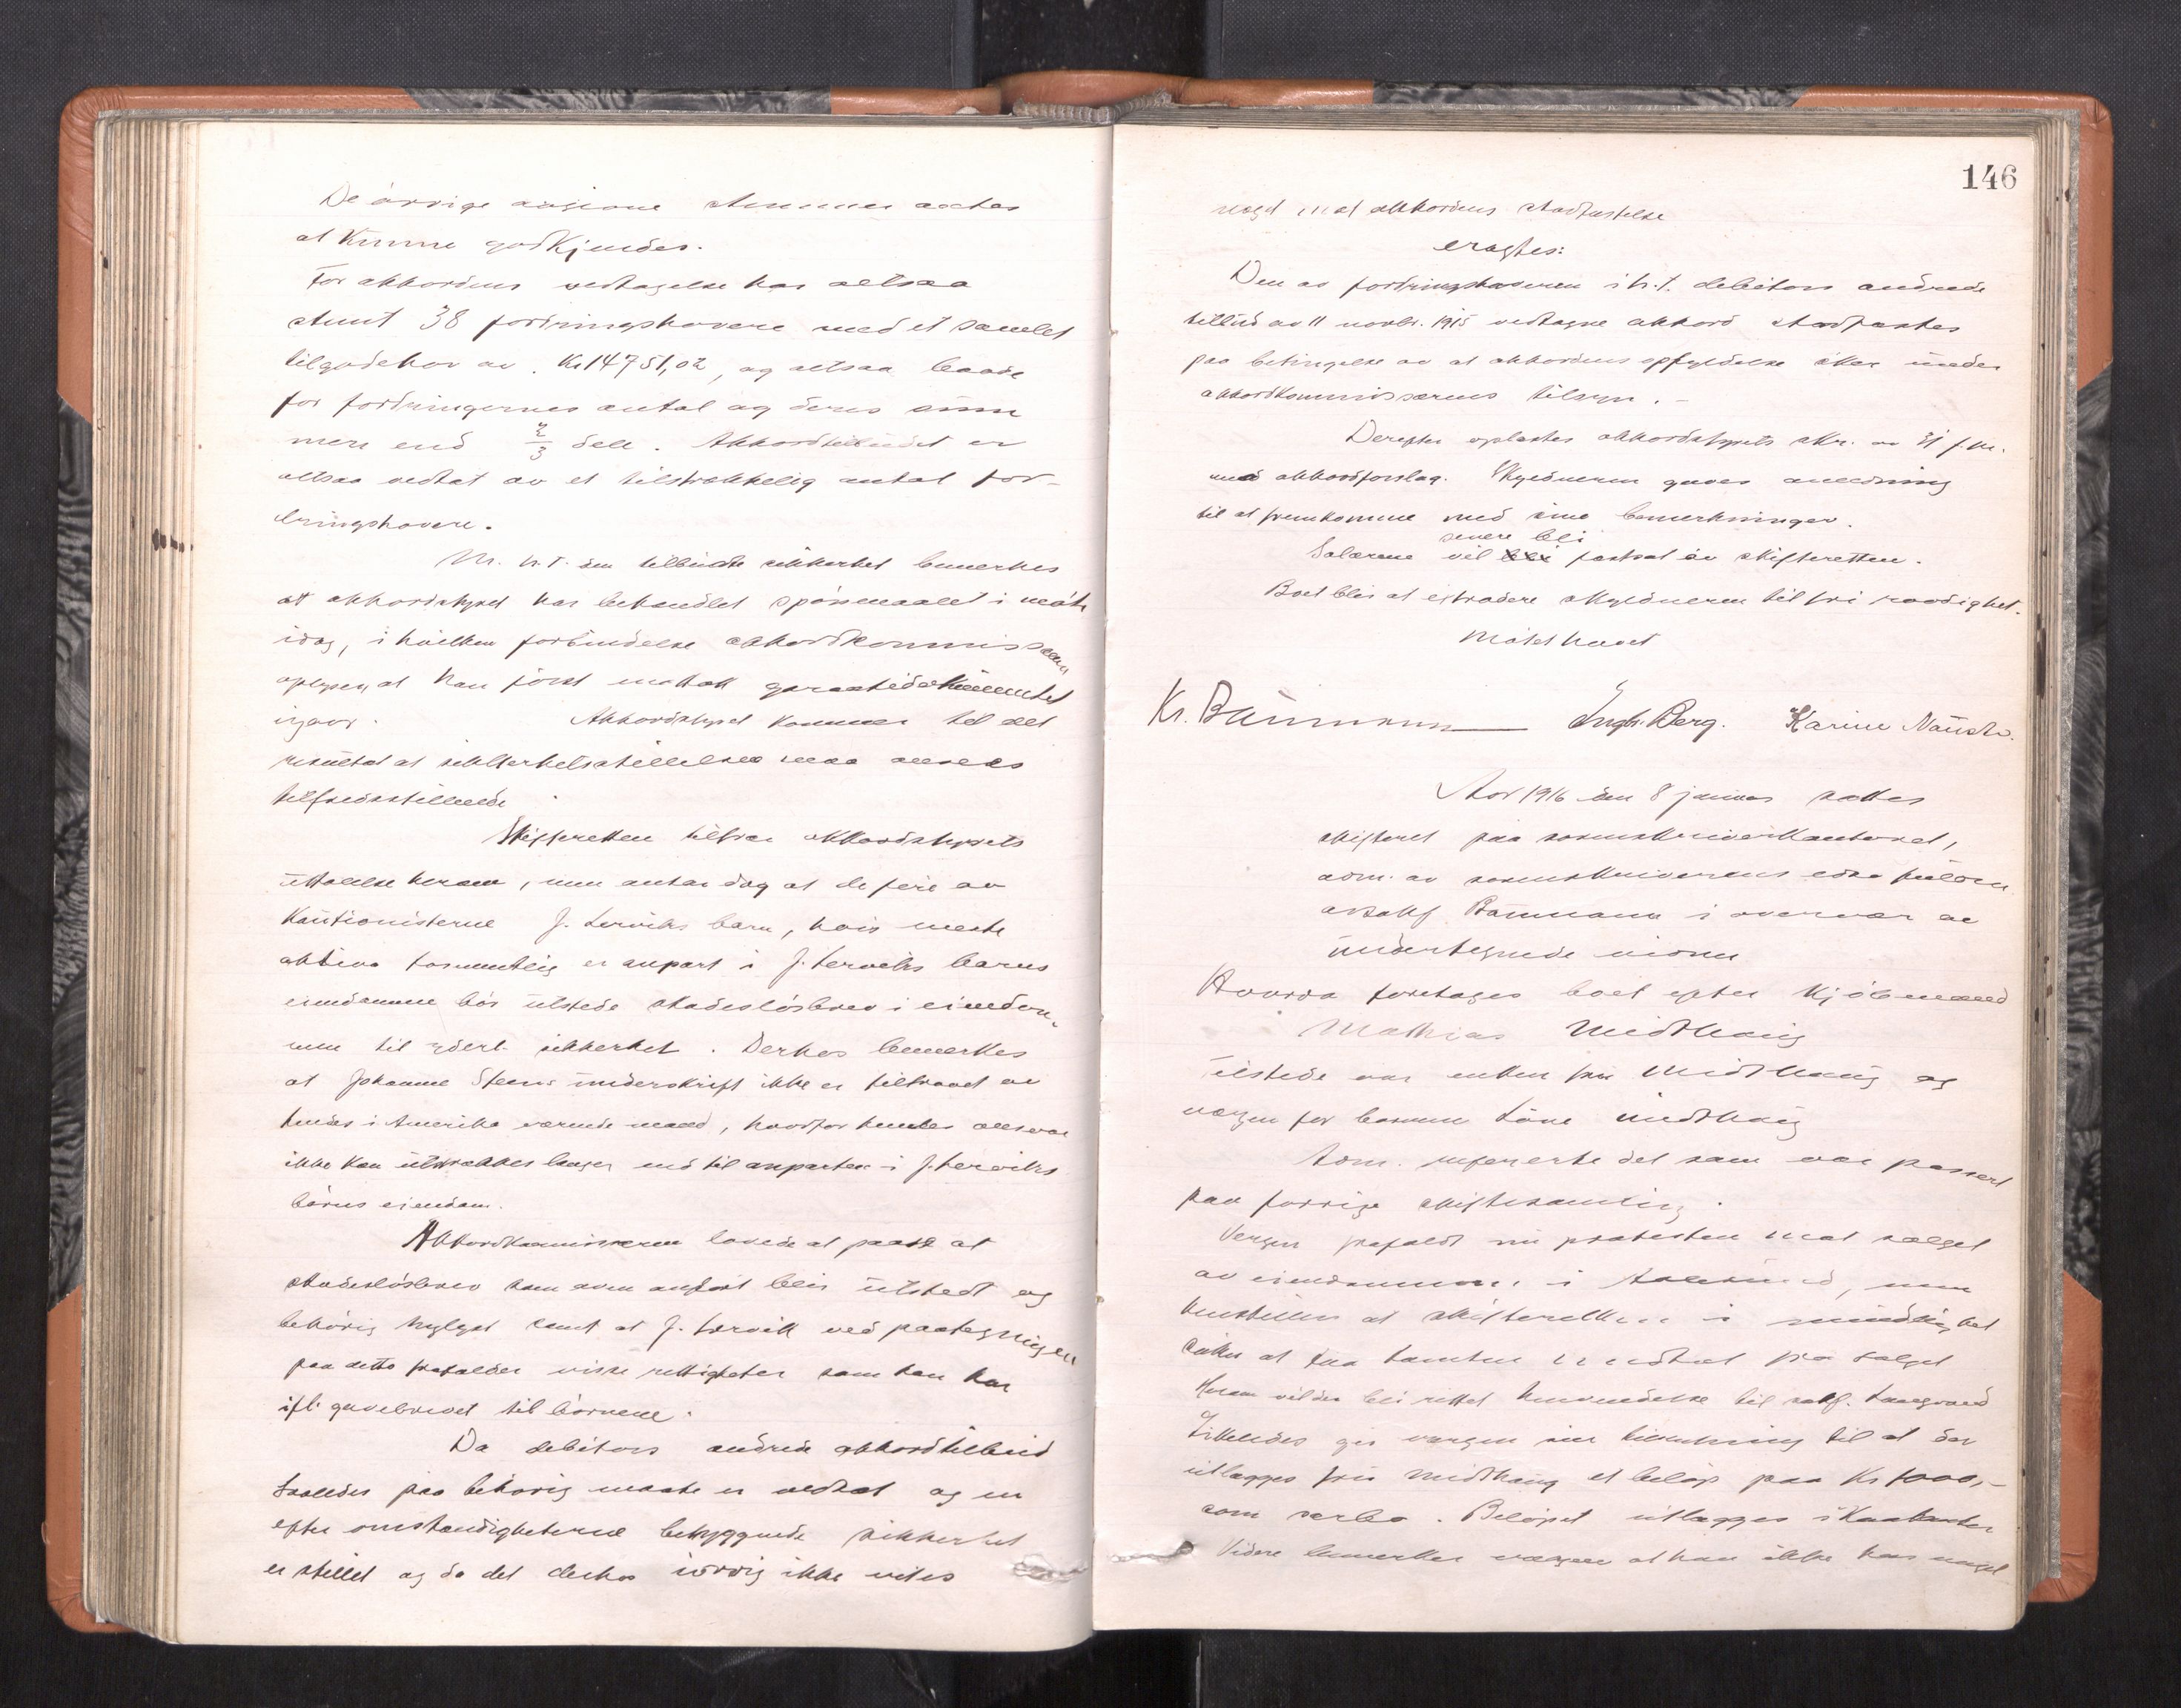 De övrige avgivne stemmer antas
at kunne godkjendes.
For akkordens vedtagelse har altsaa
stemt 38 fordringshavere med et samlet
tilgodehav av Kr 14751,02, og altsaa baade
for fordringernes antal og deres sum
mere end 2/3 dele. Akkordtilbudet er
altsaa vedtat av et tilstrækkelig antal for-
dringshavere.
M. h. t. den tilbudte sikkerhet bemerkes
at akkordstyret har behandlet spörsmaalet i möte
idag, i hvilken forbindelse akkordkommissæren
oplyser, at han först mottok garantidokumentet
igaar. Akkordstyret kommer til det
resultat at sikkerhetsstillelsen maa ansees
tilfredsstillende.
Skifteretten tiltrær akkordstyrets
uttalelse herom, men antar dog at de fire av
kautionisterne J. Lerviks barn, hvis meste
aktiva formentlig er anpart i J. Lerviks barns
eiendomme bör utstede skadeslösbrev i eiendom-
men til yderl. sikkerhet. Derhos bemerkes
at Johanne Steens underskrift ikke er tiltraadt av
hendes i Amerika værende mand, hvorfor hendes ansvar
ikke kan utstrækkes længer end til anparten i J. Lerviks
börns eiendom.
Akkordkommissæren lovede at paase at
skadeslösbrev som oven anfört blir utstedt og
behörig tinglyst samt at J. Lervik ved paategningen
paa dette frafalder visse rettigheter som han har
ifl. gavebrevet til börnene.
Da debitors endrede akkordtilbud
saaledes paa behörig maate er vedtat og en
efter omstændigheterne betryggende sikkerhet
er stillet og da det derhos iövrig ikke vites
146
noget mot akkordens stadfæstelse
eragtes:
Den av fordringshaverne i h. t. debitors endrede
tilbud av 11 novbr. 1915 vedtagne akkord stadfæstes
paa betingelse av at akkordens opfyldelse sker under
akkordkommissærens tilsyn. -
Derefter oplæstes akkordstyrets skr. av 31 f. m.
med akkordforslag. Skyldneren gaves anledning
til at fremkomme med sine bemerkninger.
senere bli
Salærene vil bli fastsat av skifteretten.
Boet blir at extradere skyldneren til fri raadighet.
Mötet hævet
Kr. Baumann Engh. Berg. Karine Naustv.
Aar 1916 den 8 januar sattes
skifteret paa sorenskriverkontoret,
adm. av sorenskriverens edsv. fuldm.
Baumann i overvær av
undertegnede vidner
Hvorda foretages boet efter kjöbmand
Mathias Midthaug
Tilstede var enken fru Midthaug og
vergen for barnene Lars Midthaug
Adm. refererte det som var passert
paa forrige skiftesamling.
Vergen frafaldt nu protesten mot salget
av eiendommene i Aalesund, men
henstiller at skifteretten i
at faa tomten undtat fra salget
Herom vil der bli rettet henvendelse til sakf.
Likeledes gir vergen sin tilslutning til at der
utlægges fru Midthaug et belöp paa Kr 1000,-
som særbo. Belöpet utlægges i kontanter
Videre bemerker vergen at han ikke har noget